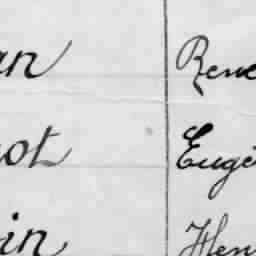 an Rene
not Eugé
in Hen